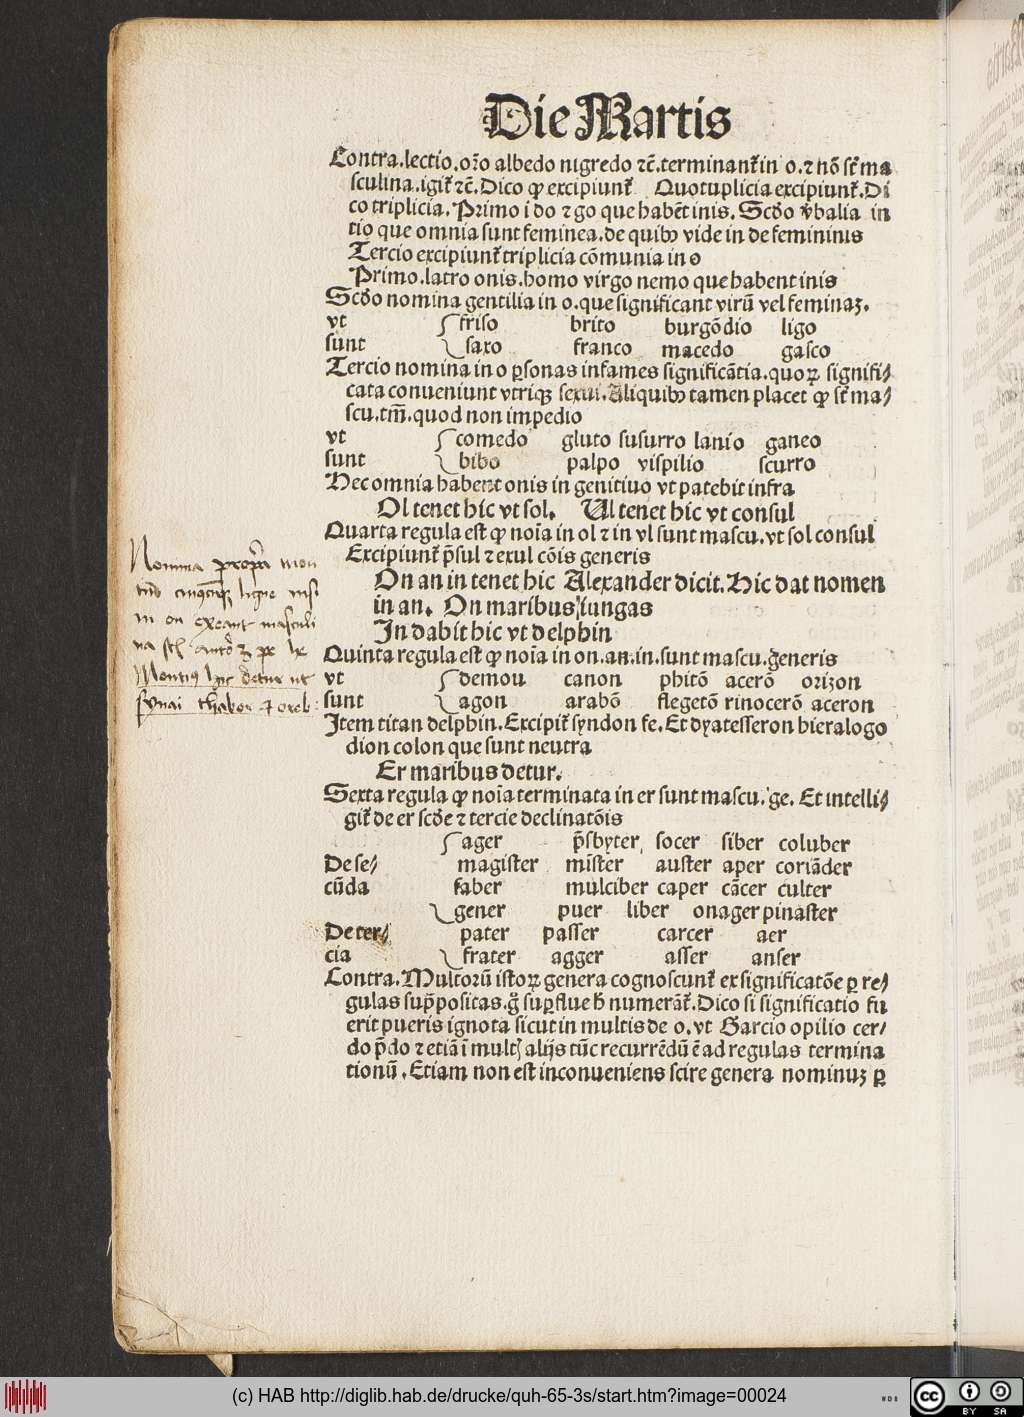 Die Martis
Contra.lectio.orõ albedo nigredo ⁊c̃.terminant᷑ in o.⁊ nõ st᷑ ma
sculina.igit᷑ ⁊c̃.Dico ꝙ excipiunt᷑ Quotuplicia excipiunt᷑.Di
co triplicia.Primo i do ⁊ go que habẽt inis.Scd̾o v̾balia in
tio que omnia sunt feminea.de quibꝰ vide in de femininis
Tercio excipiunt᷑ triplicia cõmunia in o
Primo.latro onis.homo virgo nemo que habent inis
Scd̾o nomina gentilia in o.que significant virũ vel feminaꝫ.
vt friso brito burgõdio ligo
sunt saxo franco macedo gasco
Tercio nomina in o ꝑsonas infames significãtia.quoꝝ signifi⸗
cata conueniunt vtriqꝫ sexui.Aliquibꝰ tamen placet ꝙ st᷑ ma⸗
scu.tm̃.quod non impedio
vt comedo gluto susurro lanio ganeo
sunt bibo palpo vispilio scurro
Hec omnia habent onis in genitiuo vt patebit infra
Ol tenet hic vt sol. Ul tenet hic vt consul
Quarta regula est ꝙ noĩa in ol ⁊ in vl sunt mascu.vt sol consul
Excipiunt᷑ p̃sul ⁊ exul cõis generis
On an in tenet hic Alexander dicit.Hic dat nomen
in an. On maribus iungas
In dabit hic vt delphin
Quinta regula est ꝙ noĩa in on.an.in.sunt mascu.generis
vt demon canon phitõ acerõ orizon
sunt agon arabõ flegetõ rinocerõ aceron
Item titan delphin.Excipit᷑ syndon fe.Et dyatesseron hieralogo
dion colon que sunt neutra
Er maribus detur.
Sexta regula ꝙ noĩa terminata in er sunt mascu.ge. Et intelli⸗
git᷑ de er scd̾e ⁊ tercie declinatõis
ager p̃sbyter socer siber coluber
De se⸗ magister mĩster auster aper coriãder
cũda faber mulciber caper cãcer culter
gener puer liber onager pinaster
De ter⸗ pater passer carcer aer
cia frater agger asser anser
Contra.Multorũ istoꝝ genera cognoscunt᷑ ex significatõe ꝑ re⸗
gulas sup̃positas.g̊ suꝑflue h̾ numerãt᷑.Dico si significatio fu
erit pueris ignota sicut in multis de o.vt Garcio opilio cer⸗
do p̃do ⁊ etiã ĩ mult̃ alijs tũc recurrẽdũ ẽ ad regulas termina
tionũ.Etiam non est inconueniens scire genera nominuꝫ ꝑ
Nomina propri mon
tiũ cuiuscũqꝫ ligne nisi
in on exeant masculi
na
Montis hic detur ut
synai thabor ⁊ oreb
(c) HAB http://diglib.hab.de/drucke/quh-65-3s/start.htm?image=00024
WDB
cc BY SA